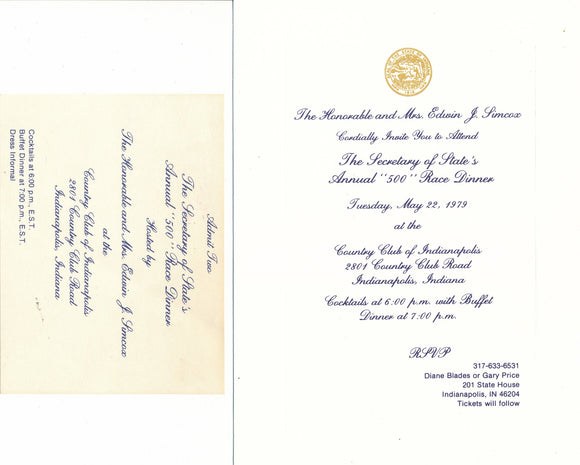 Admit Two
The Secretary of State's
Annual "500" Race Dinner
Hosted by
The Honorable and Mrs. Edwin J. Simcox
at the
Country Club of Indianapolis
2801 Country Club Road
Indianapolis, Indiana
Cocktails at 6:00 p.m., E.S.T.
Buffet Dinner at 7:00 p.m., E.S.T.
Dress Informal
The Honorable and Mrs. Edwin J. Simcox
Cordially Invite You to Attend
The Secretary of State's
Annual "500" Race Dinner
Tuesday, May 22, 1979
at the
Country Club of Indianapolis
2801 Country Club Road
Indianapolis, Indiana
Cocktails at 6:00 p.m. with Buffet
Dinner at 7:00 p.m.
RSVP
317-633-6531
Diane Blades or Gary Price
201 State House
Indianapolis, IN 46204
Tickets will follow